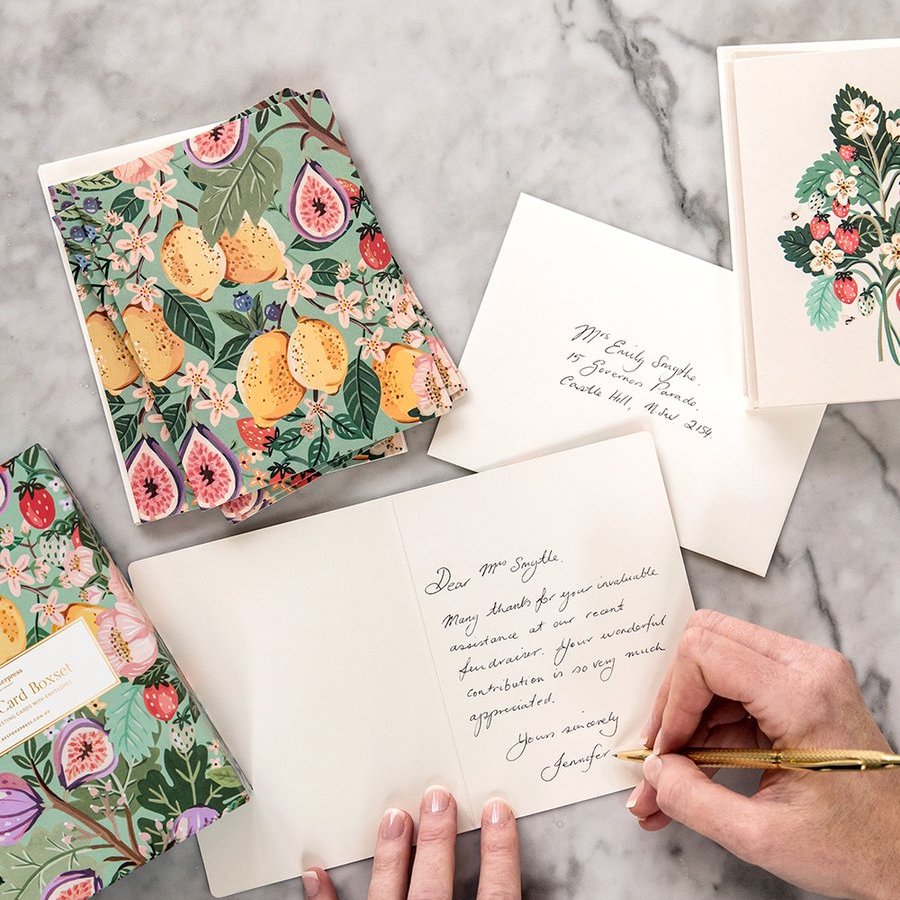 Mrs Emily Smythe.
15 Governors Parade.
Castle Hill, NSW 2154.
Dear Mrs Smythe.
Many thanks for your invaluable
assistance at our recent
fundraiser. Your wonderful
contribution is so very much
appreciated.
Yours sincerely
Jennifer
Card Boxset